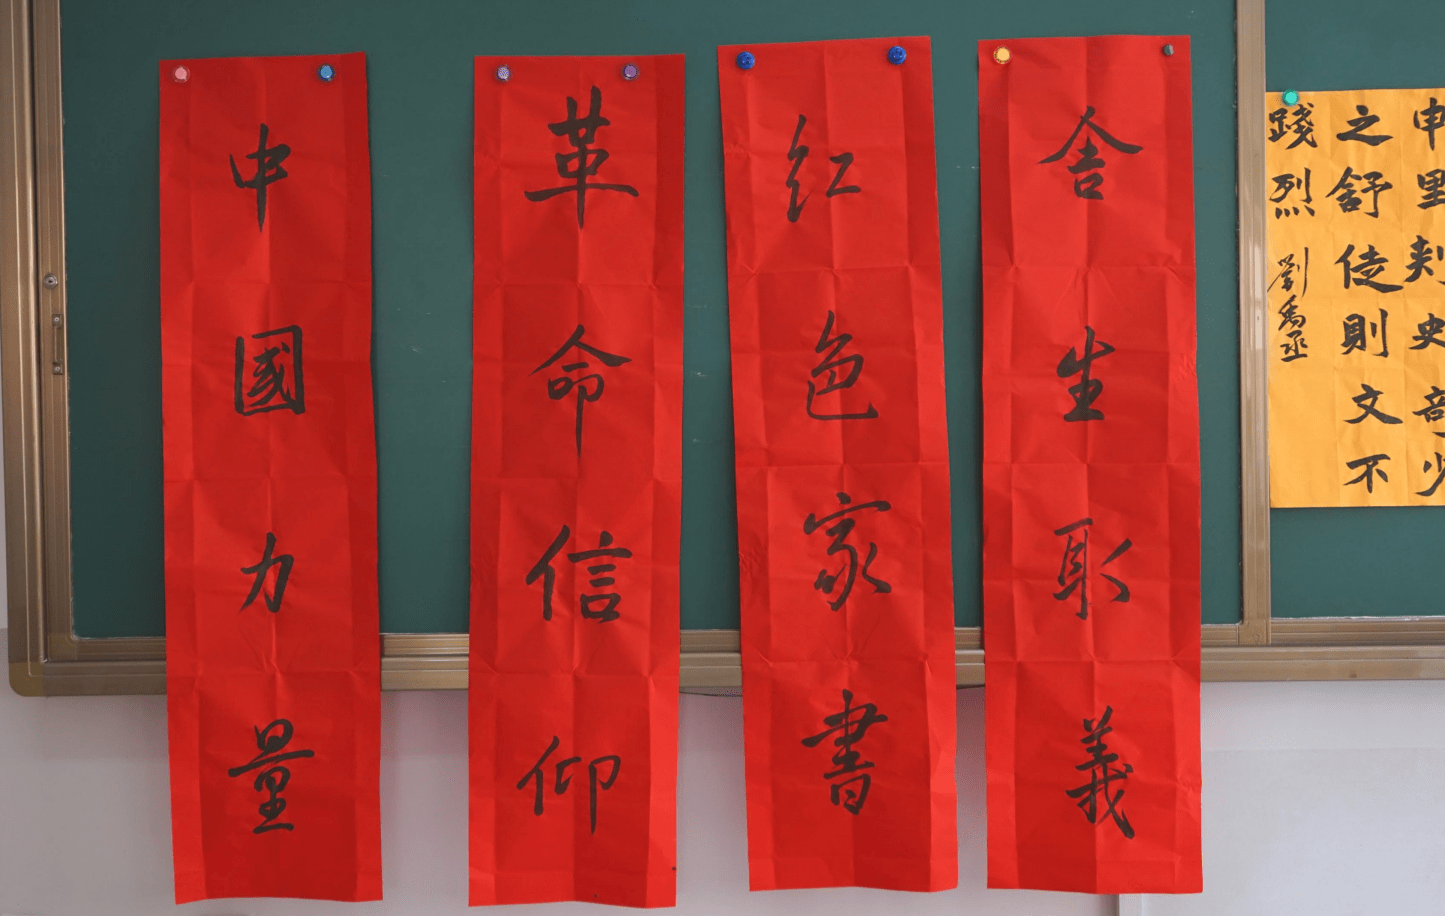 中國力量
革命信仰
红色家書
舍生取義
里史
之舒則文不
踐烈
劉禹丞